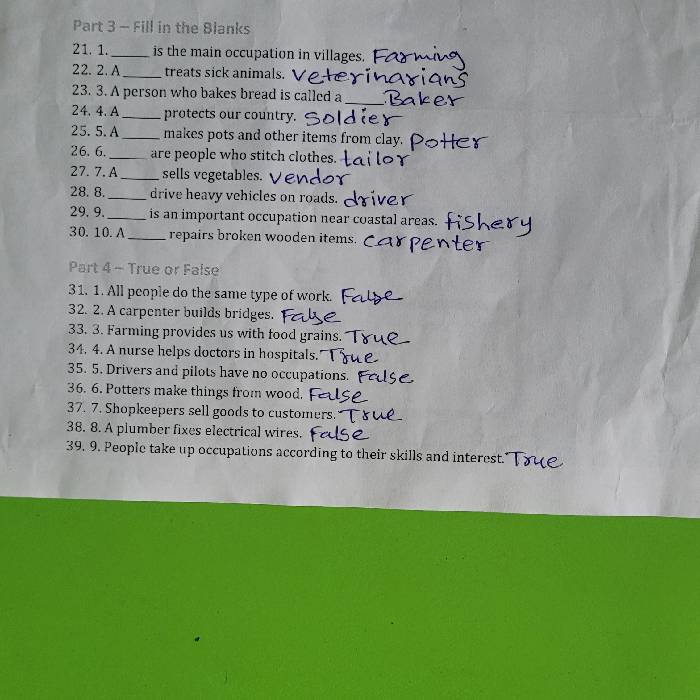 Part 3 – Fill in the Blanks
21. 1. _____ is the main occupation in villages. Farming
22. 2. A _____ treats sick animals. Veterinarians
23. 3. A person who bakes bread is called a _____. Baker
24. 4. A _____ protects our country. Soldier
25. 5. A _____ makes pots and other items from clay. Potter
26. 6. _____ are people who stitch clothes. tailor
27. 7. A _____ sells vegetables. Vendor
28. 8. _____ drive heavy vehicles on roads. driver
29. 9. _____ is an important occupation near coastal areas. fishery
30. 10. A _____ repairs broken wooden items. Carpenter
Part 4 – True or False
31. 1. All people do the same type of work. False
32. 2. A carpenter builds bridges. False
33. 3. Farming provides us with food grains. True
34. 4. A nurse helps doctors in hospitals. True
35. 5. Drivers and pilots have no occupations. False
36. 6. Potters make things from wood. False
37. 7. Shopkeepers sell goods to customers. True
38. 8. A plumber fixes electrical wires. False
39. 9. People take up occupations according to their skills and interest. True